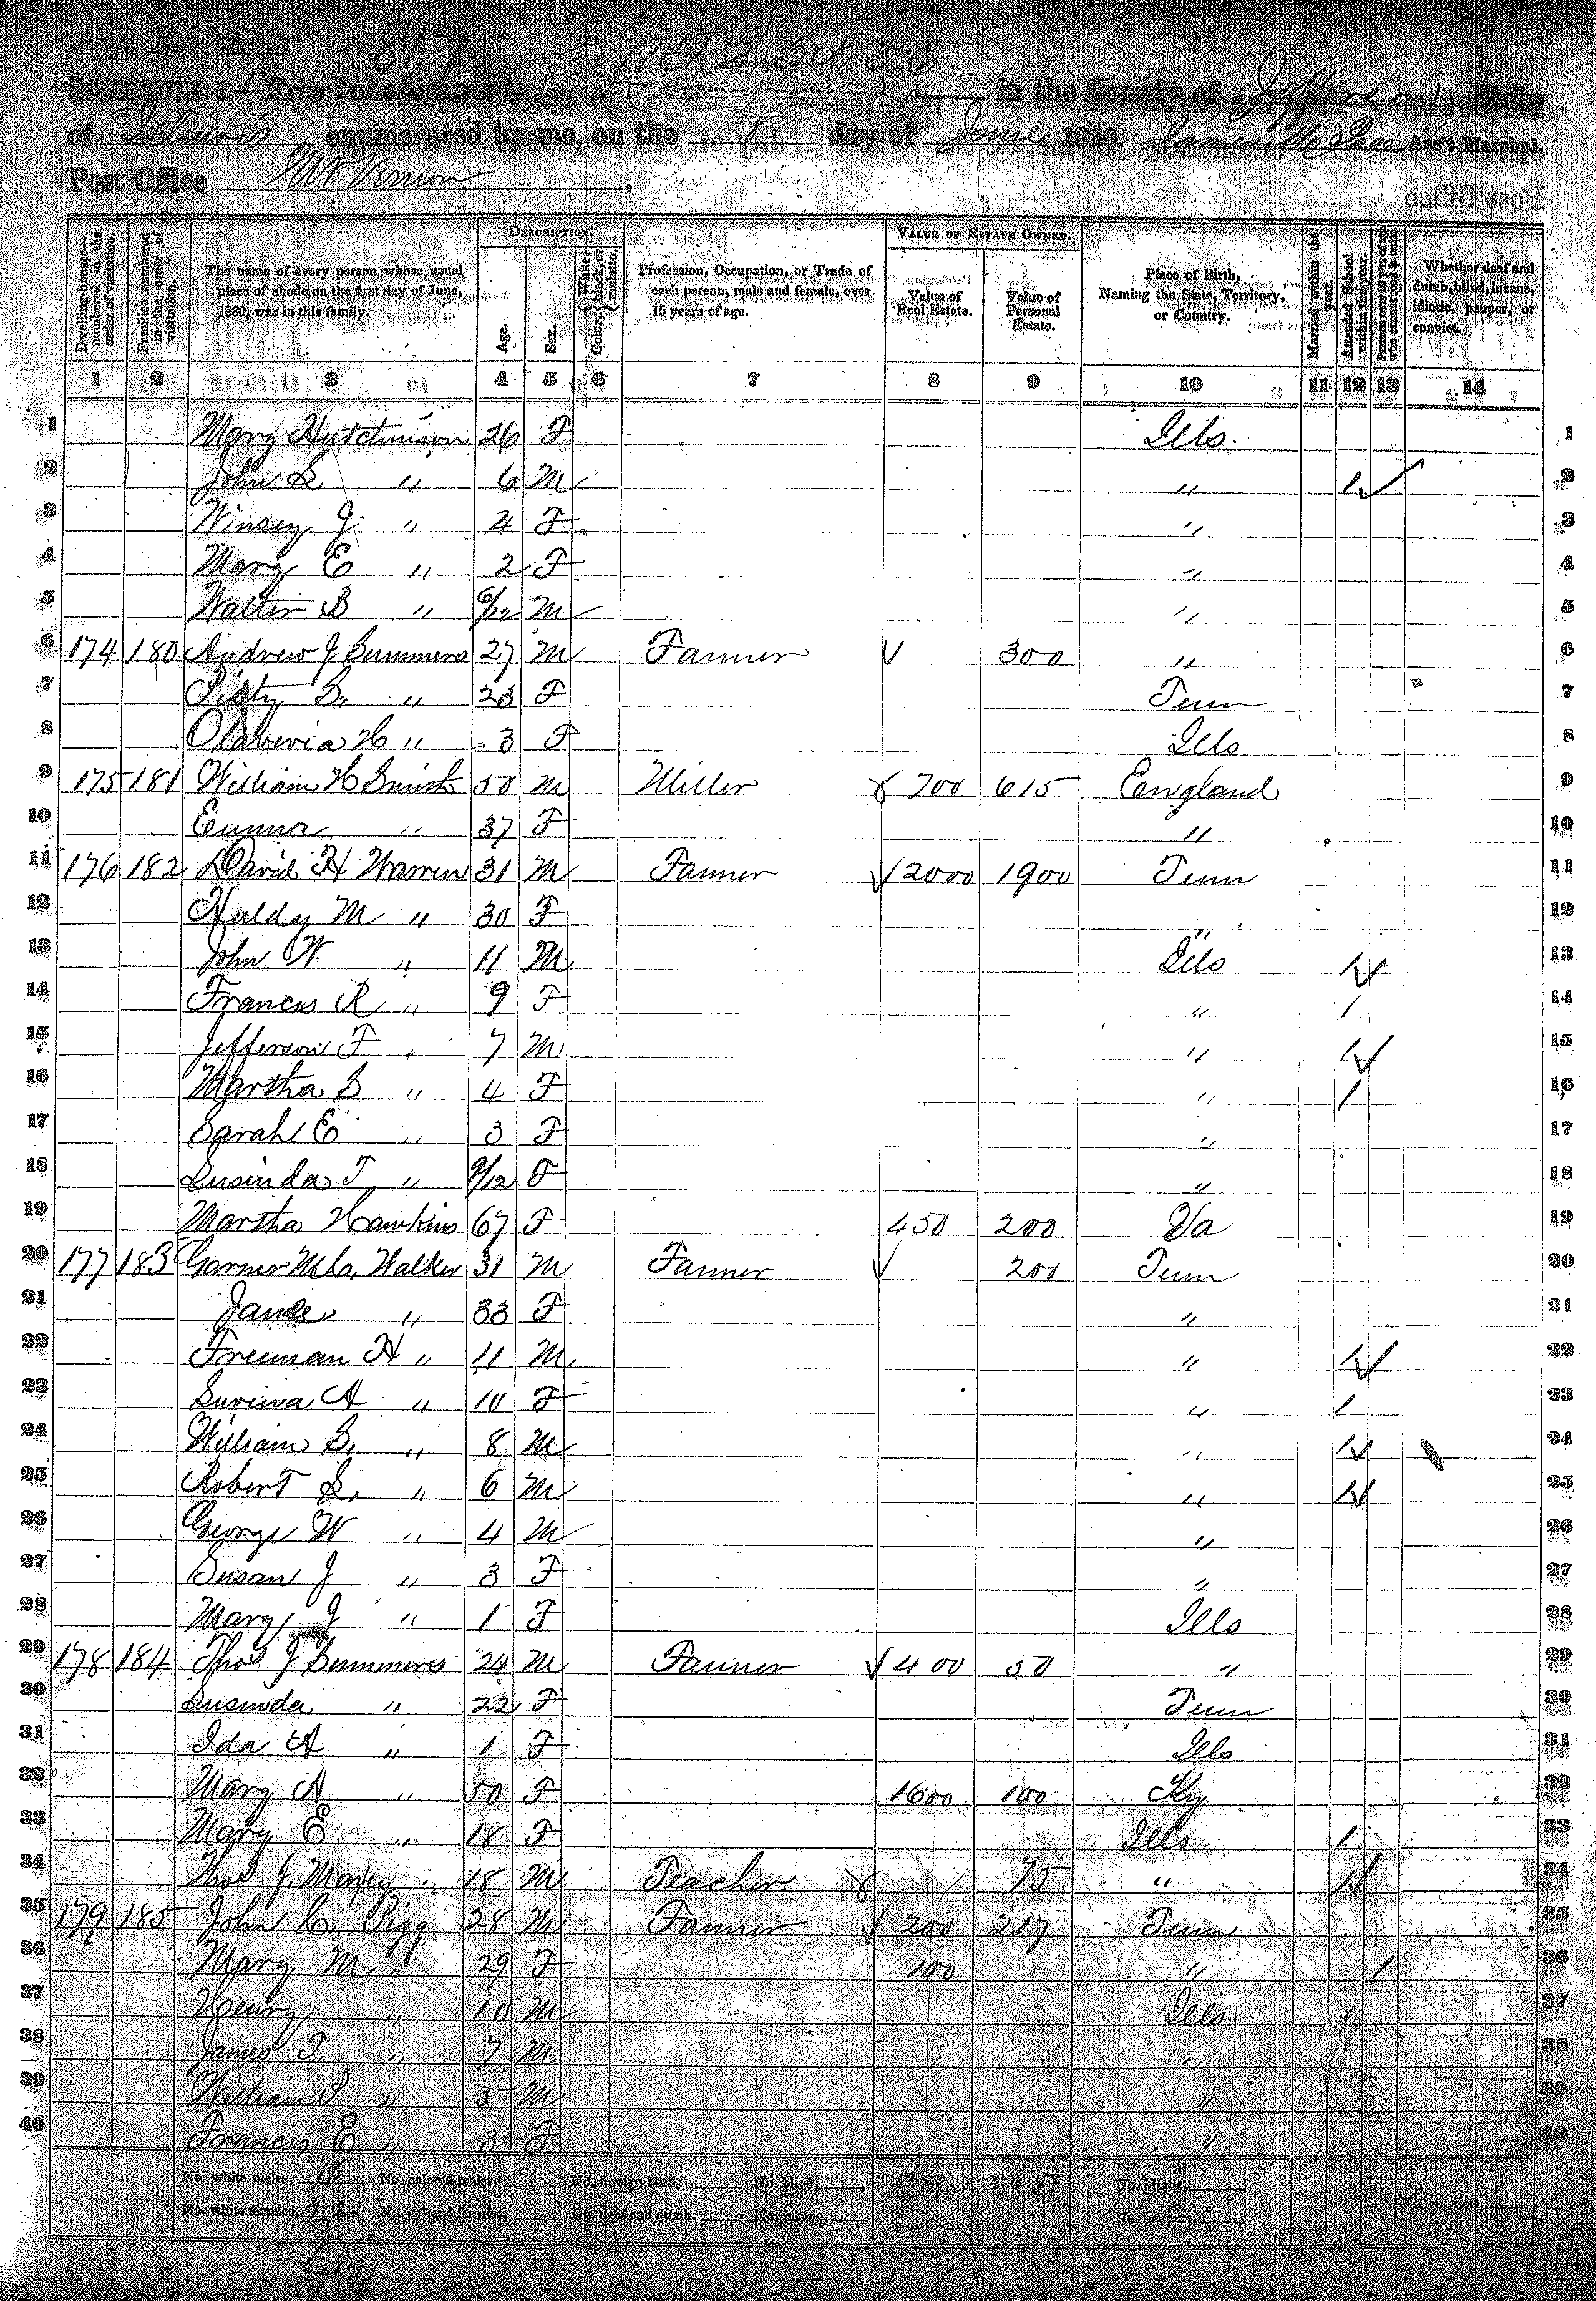 Page No. 27
817
11 T2 S R 3 E
SCHEDULE 1.—Free Inhabitants in in the County of Jefferson State
of Illinois enumerated by me, on the 8 day of June 1860. James M Pace Ass't Marshal.
Post Office Mt Vernon
Dwelling-house—numbered in the order of visitation.
Families numbered in the order of visitation.
The name of every person whose usual place of abode on the first day of June, 1860, was in this family.
DESCRIPTION.
Age.
Sex.
Color, White, black, or mulatto.
Profession, Occupation, or Trade of each person, male and female, over 15 years of age.
VALUE OF ESTATE OWNED.
Value of Real Estate.
Value of Personal Estate.
Place of Birth, Naming the State, Territory, or Country.
Married within the year.
Attended School within the year.
Persons over 20 y'rs of age who cannot read & write.
Whether deaf and dumb, blind, insane, idiotic, pauper, or convict.
1 2 3 4 5 6 7 8 9 10 11 12 13 14
1 Mary Hutchinson 26 F Ills 1
2 John S " 6 M " 1 2
3 Winsey J " 4 F " 3
4 Mary E " 2 F " 4
5 Walter B " 6/12 M " 5
6 174 180 Andrew J Summers 27 M Farmer 300 " 6
7 S. " 23 F Tenn 7
8 H " 3 F Ills 8
9 175 181 William H Smith 50 M Miller 700 615 England 9
10 Emma " 37 F " 10
11 176 182 David H Warren 31 M Farmer 2000 1900 Tenn 11
12 Huldy M " 30 F " 12
13 John W " 11 M Ills 1 13
14 Francis R " 9 F " 1 14
15 Jefferson F " 7 M " 1 15
16 Martha S " 4 F " 1 16
17 Sarah E " 3 F " 17
18 Lusinda T " 9/12 F " 18
19 Martha Hawkins 67 F 450 200 Va 19
20 177 183 Garner McC. Walker 31 M Farmer 200 Tenn 20
21 Jane " 33 F " 21
22 Freeman H " 11 M " 1 22
23 A " 10 F " 1 23
24 William S. " 8 M " 1 24
25 Robert L. " 6 M " 1 25
26 George W " 4 M " 26
27 Susan J " 3 F " 27
28 Mary J " 1 F Ills 28
29 178 184 Thos J Summers 24 M Farmer 400 50 " 29
30 Lusinda " 22 F Tenn 30
31 Ida A " 1 F Ills 31
32 Mary A " 50 F 1600 100 Ky 32
33 Mary E " 18 F Ills 1 33
34 Thos J Maxey 18 M Teacher 75 " 1 34
35 179 185 John C. Pigg 28 M Farmer 200 217 Tenn 35
36 Mary M " 29 F 100 " 1 36
37 Henry " 10 M Ills 1 37
38 James T. " 7 M " 38
39 William " 5 M " 39
40 Francis E " 3 F " 40
No. white males, 18 No. colored males, No. foreign born, No. blind, 5350 3657 No. idiotic,
No. white females, 22 No. colored females, No. deaf and dumb, No. insane, No. paupers, No. convicts,